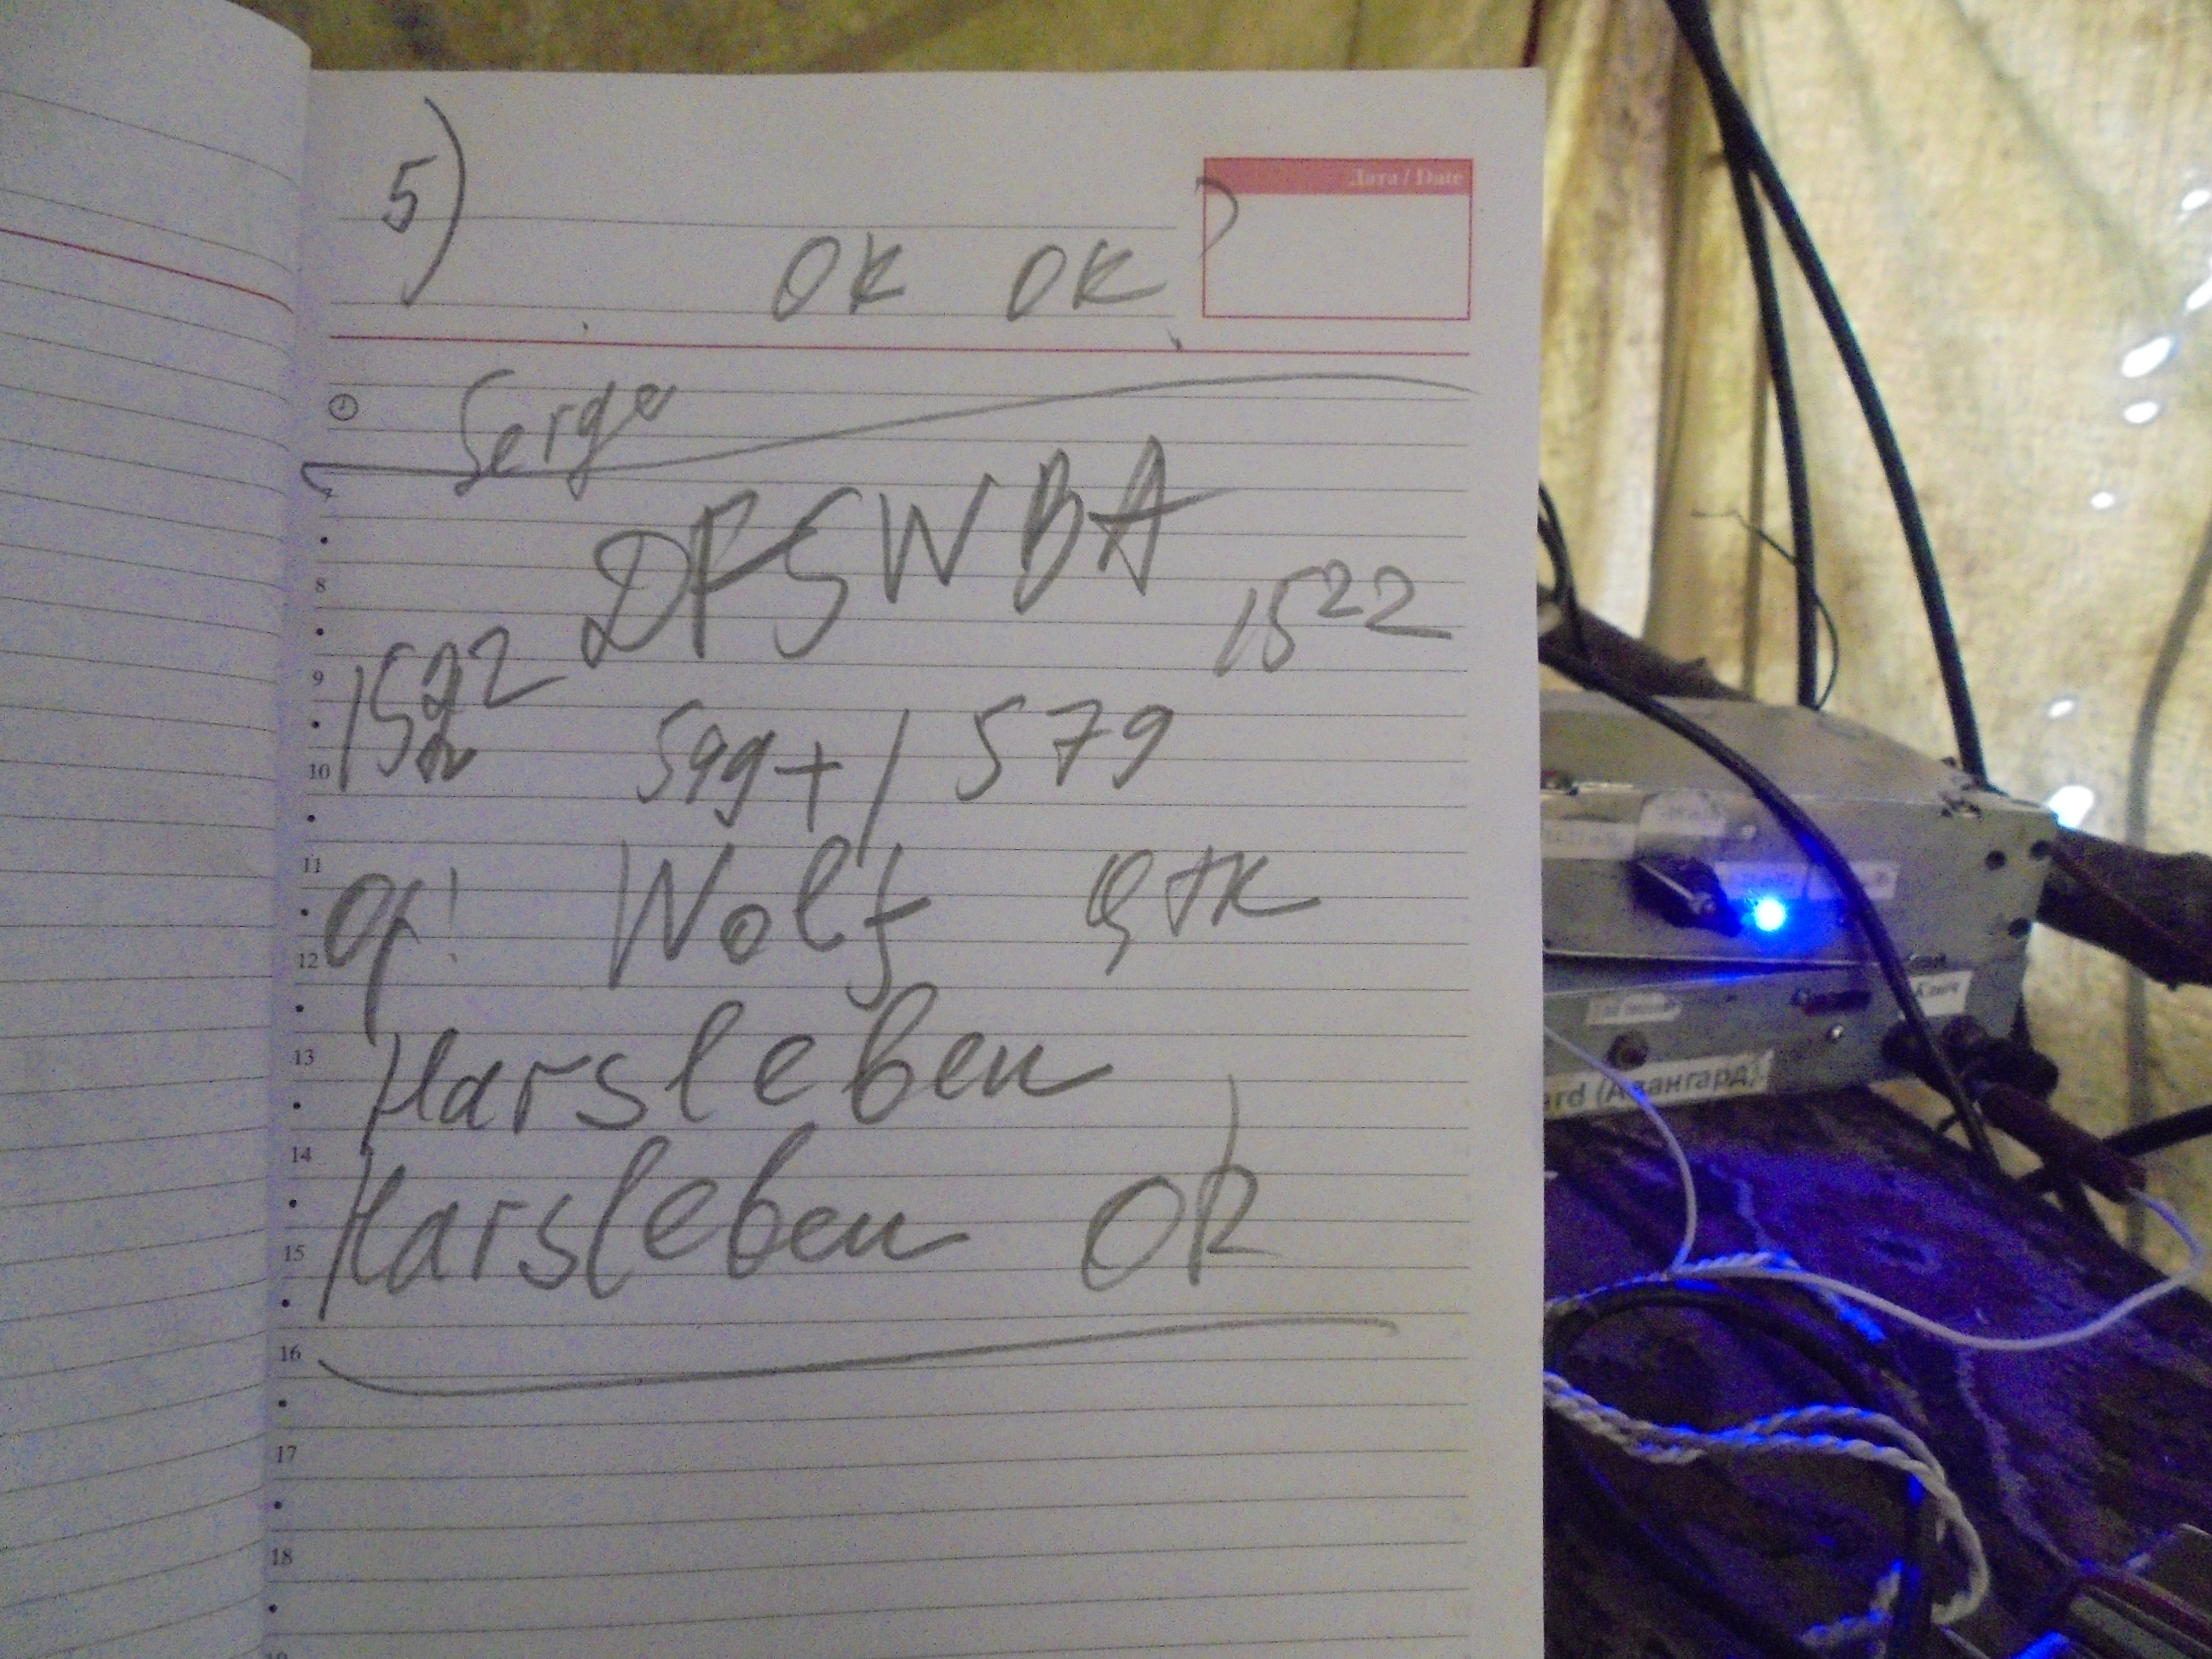 5)
Дата / Date
OK OK
Serge
DF5WBA
15 22
15 22
599+ / 579
op! Wolf QTH
Harsleben
Harsleben OK
7
8
9
10
11
12
13
14
15
16
17
18
Ключ
ard (Авангард)